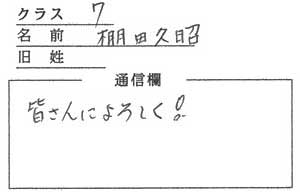 クラス 7
名前 棚田久昭
旧姓
通信欄
皆さんによろしく!